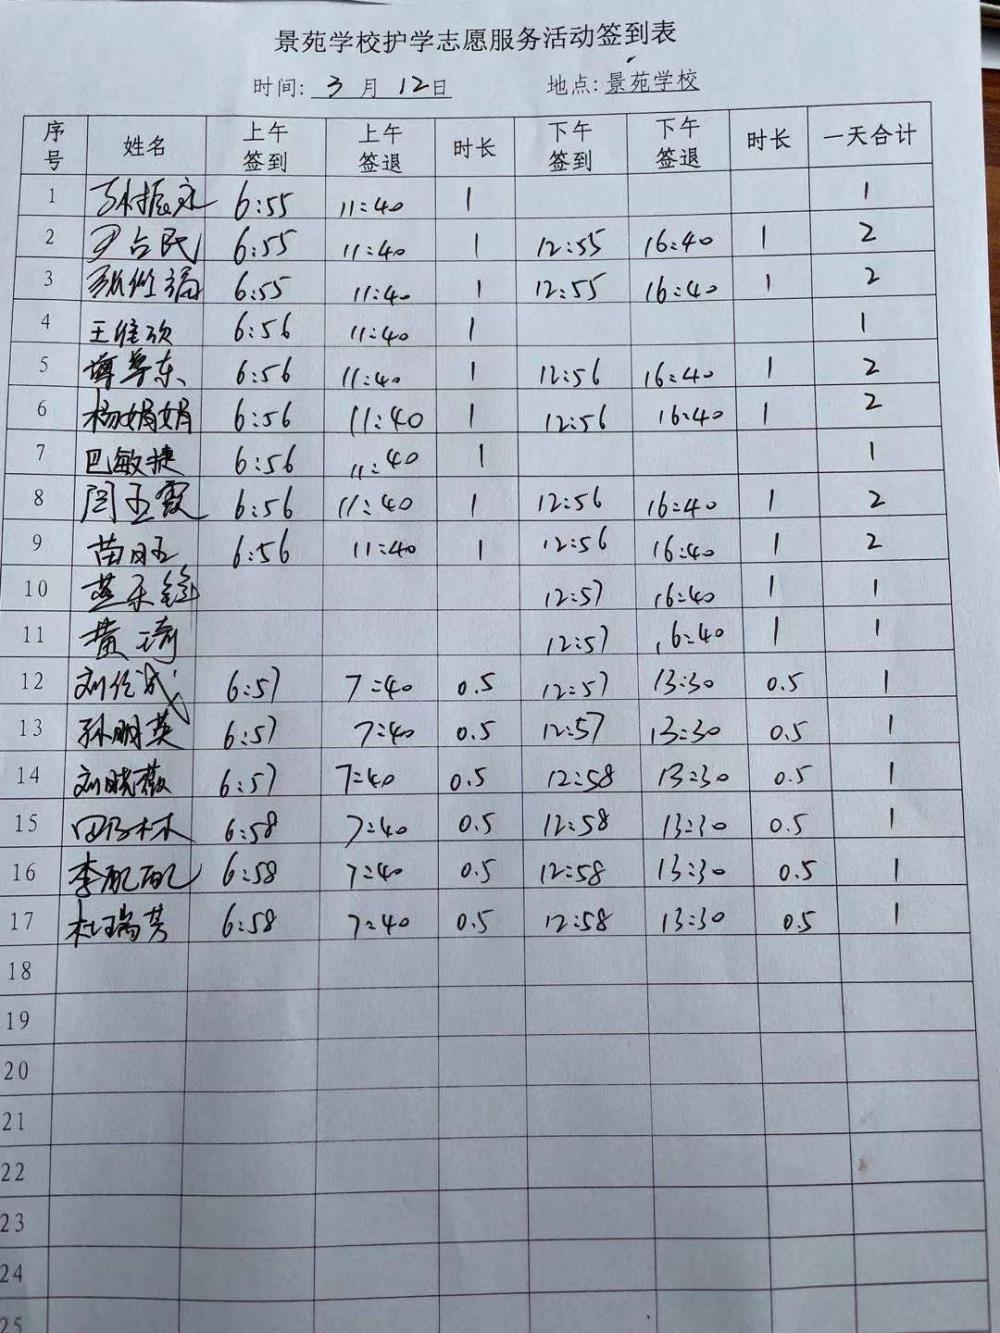 景苑学校护学志愿服务活动签到表
时间: 3 月 12 日 地点: 景苑学校
序号 姓名 上午签到 上午签退 时长 下午签到 下午签退 时长 一天合计
1 6:55 11:40 1 1
2 尹占民 6:55 11:40 1 12:55 16:40 1 2
3 6:55 11:40 1 12:55 16:40 1 2
4 王维欣 6:56 11:40 1 1
5 6:56 11:40 1 12:56 16:40 1 2
6 杨娟娟 6:56 11:40 1 12:56 16:40 1 2
7 巴敏捷 6:56 11:40 1 1
8 闫玉霞 6:56 11:40 1 12:56 16:40 1 2
9 苗旺 6:56 11:40 1 12:56 16:40 1 2
10 12:57 16:40 1 1
11 黄琦 12:57 16:40 1 1
12 6:57 7:40 0.5 12:57 13:30 0.5 1
13 孙明英 6:57 7:40 0.5 12:57 13:30 0.5 1
14 刘晓薇 6:57 7:40 0.5 12:58 13:30 0.5 1
15 田乃林 6:58 7:40 0.5 12:58 13:30 0.5 1
16 6:58 7:40 0.5 12:58 13:30 0.5 1
17 杜瑞芳 6:58 7:40 0.5 12:58 13:30 0.5 1
18
19
20
21
22
23
24
25